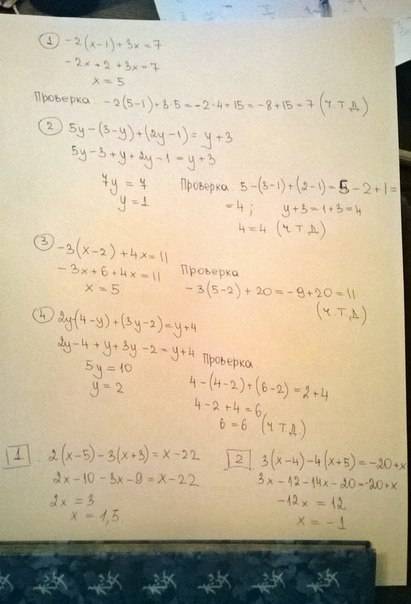 ① -2(x-1)+3x=7
-2x+2+3x=7
x=5
Проверка -2(5-1)+3·5=-2·4+15=-8+15=7 (ч.т.д)
② 5y-(3-y)+(2y-1)=y+3
5y-3+y+2y-1=y+3
7y=7
y=1
Проверка 5-(3-1)+(2-1)=5-2+1=
=4; y+3=1+3=4
4=4 (ч.т.д)
③ -3(x-2)+4x=11
-3x+6+4x=11
x=5
Проверка
-3(5-2)+20=-9+20=11
(ч.т.д)
④ 2y-(4-y)+(3y-2)=y+4
2y-4+y+3y-2=y+4
5y=10
y=2
Проверка
4-(4-2)+(6-2)=2+4
4-2+4=6
6=6 (ч.т.д)
1 2(x-5)-3(x+3)=x-22
2x-10-3x-9=x-22
2x=3
x=1,5
2 3(x-4)-4(x+5)=-20+x
3x-12-14x-20=-20+x
-12x=12
x=-1
桜 桜 桜 桜 桜